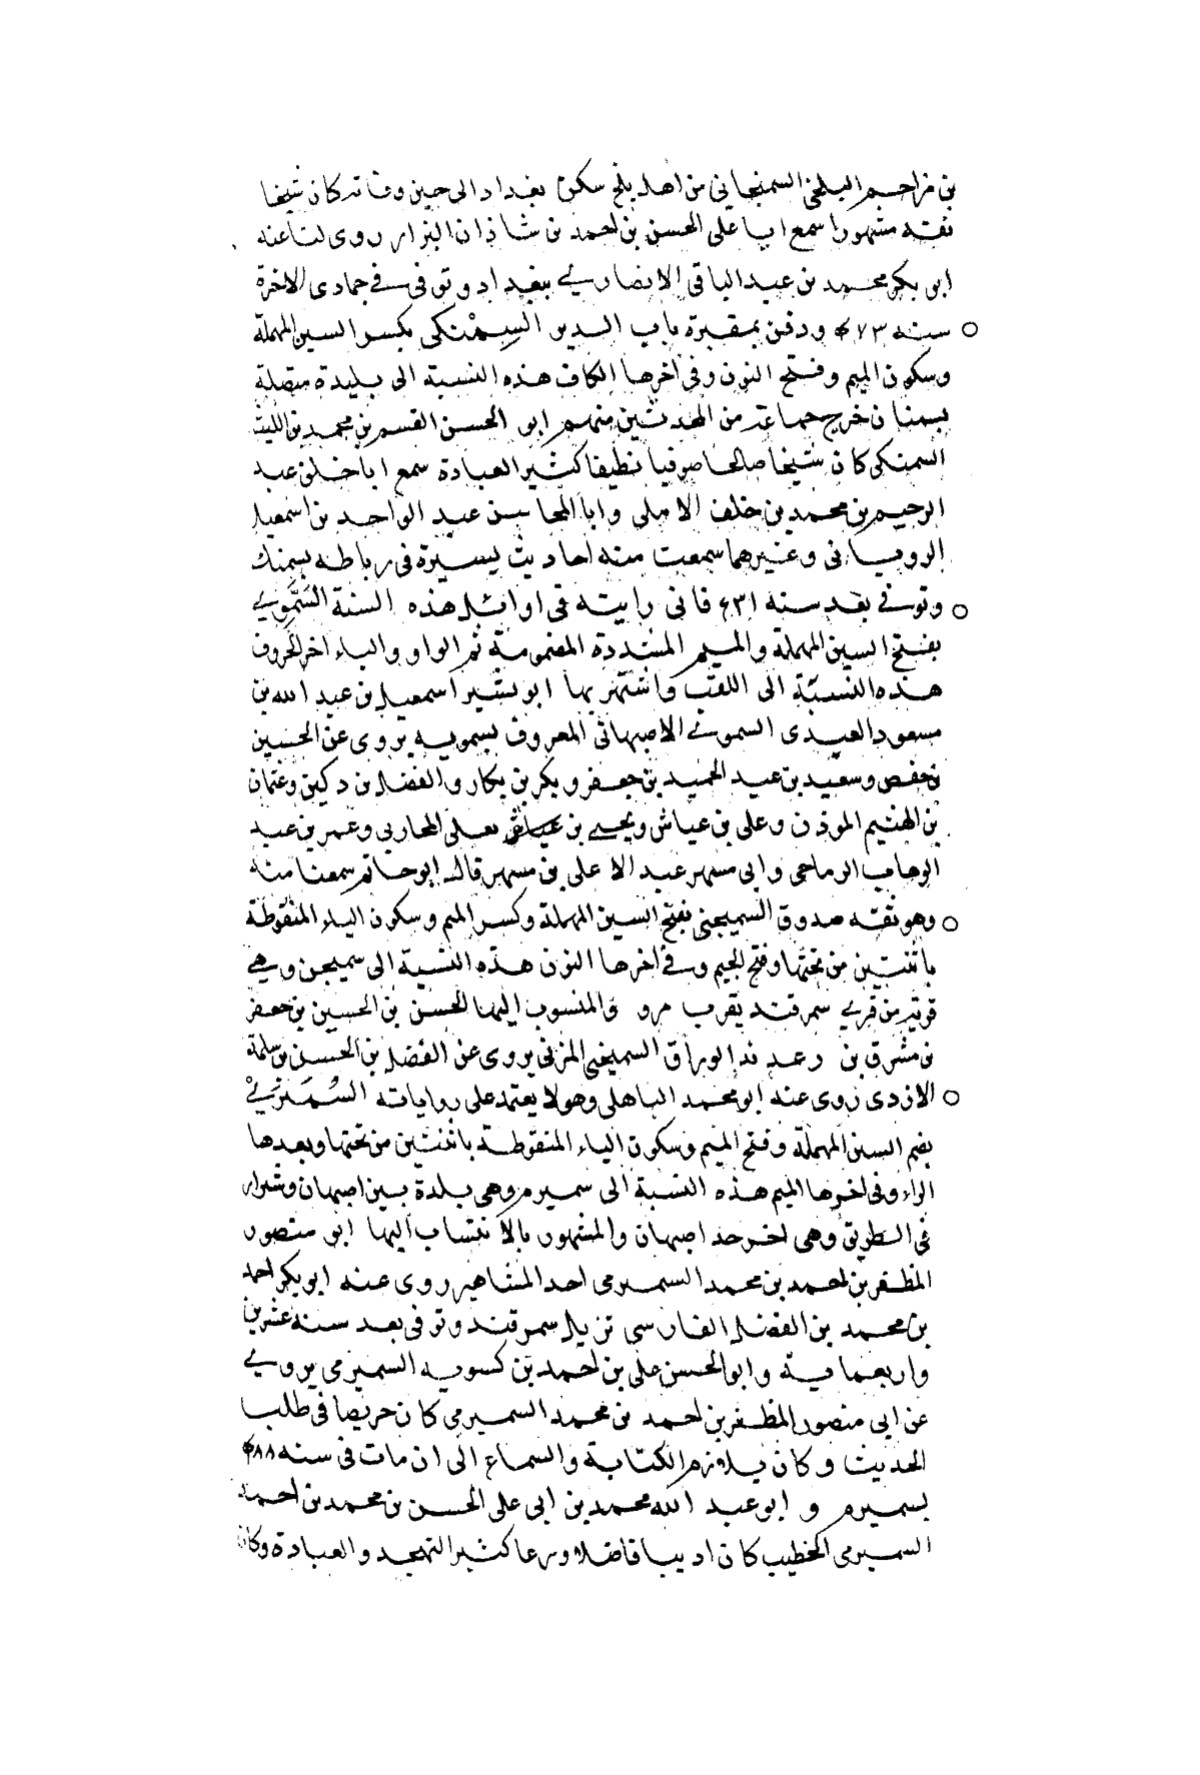 بن مزاحم البلخى السمنجانى من اهل بلخ سكن بغداد الى حين وفاته كان شيخا
ثقة مشهورا سمع ابا على الحسن بن احمد بن شاذان البزار روى لنا عنه
ابو بكر محمد بن عبد الباقى الانصارى ببغداد وتوفى فى جمادى الاخرة
سنه ٤٧٣ ودفن بمقبرة باب الدير السِمْنكى بكسر السين المهملة
وسكون الميم وفتح النون وفى اخرها الكاف هذه النسبة الى بليدة متصلة
بسمنان خرج جماعة من المحدثين منهم ابو الحسن القسم بن محمد بن الليث
السمنكى كان شيخا صالحا صوفيا نظيفا كثير العبادة سمع ابا خلف عبد
الرحيم بن محمد بن خلف الاملى وابا المحاسن عبد الواحد بن اسمعيل
الرويانى وغيرهما سمعت منه احاديث يسيرة فى رباطه بسمنك
وتوفى بعد سنه ٤٣١ فانى رايته فى اوائل هذه السنة السَّمُّويى
بفتح السين المهملة والميم المشددة المضمومة ثم الواو والياء اخر الحروف
هذه النسبة الى اللقب واشتهر بها ابو بشير اسمعيل بن عبد الله بن
مسعود العبدى السمويى الاصبهانى المعروف بسمويه يروى عن الحسين
بن حفص وسعيد بن عبد الحميد بن جعفر وبكر بن بكار والفضل بن دكين وعثمان
بن الهيثم الموذن وعلى بن عياش ويحيى بن يعلى المحاربى وعمر بن عبد
الوهاب الرماحى وابى مسهر عبد الاعلى بن مسهر قال ابو حاتم سمعنا منه
وهو ثقة صدوق السميجنى بفتح السين المهملة وكسر الميم وسكون الياء المنقوطة
باثنتين من تحتها وفتح الجيم وفى اخرها النون هذه النسبة الى سميجن وهى
قرية من قرى سمرقند بقرب مرو والمنسوب اليها الحسن بن الحسين بن جعفر
بن مشرق بن الوراق السميجنى المزنى يروى عن الفضل بن الحسن بن سلمة
الازدى روى عنه ابو محمد الباهلى وهو لا يعتمد على رواياته السُمَيْرمى
بضم السين المهملة وفتح الميم وسكون الياء المنقوطة باثنتين من تحتها وبعدها
الراء وفى اخرها الميم هذه النسبة الى سميرم وهى بلدة بين اصبهان وشيراز
فى الطريق وهى اخر حد اصبهان والمشهور بالانتساب اليها ابو منصور
المظفر بن احمد بن محمد السميرمى احد المشاهير روى عنه ابو بكر احمد
بن محمد بن الفضل الفارسى نزيل سمرقند وتوفى بعد سنة عشرين
واربعماية وابو الحسن على بن احمد بن كسويه السميرمى يروى
عن ابى منصور المظفر بن احمد بن محمد السميرمى كان حريصا فى طلب
الحديث وكان يلازم الكتابة والسماع الى ان مات فى سنه ٤٨٨
بسميرم وابو عبد الله محمد بن ابى على الحسن بن محمد بن احمد
السميرمى الخطيب كان اديبا فاضلا ورعا كثير التهجد والعبادة وكان